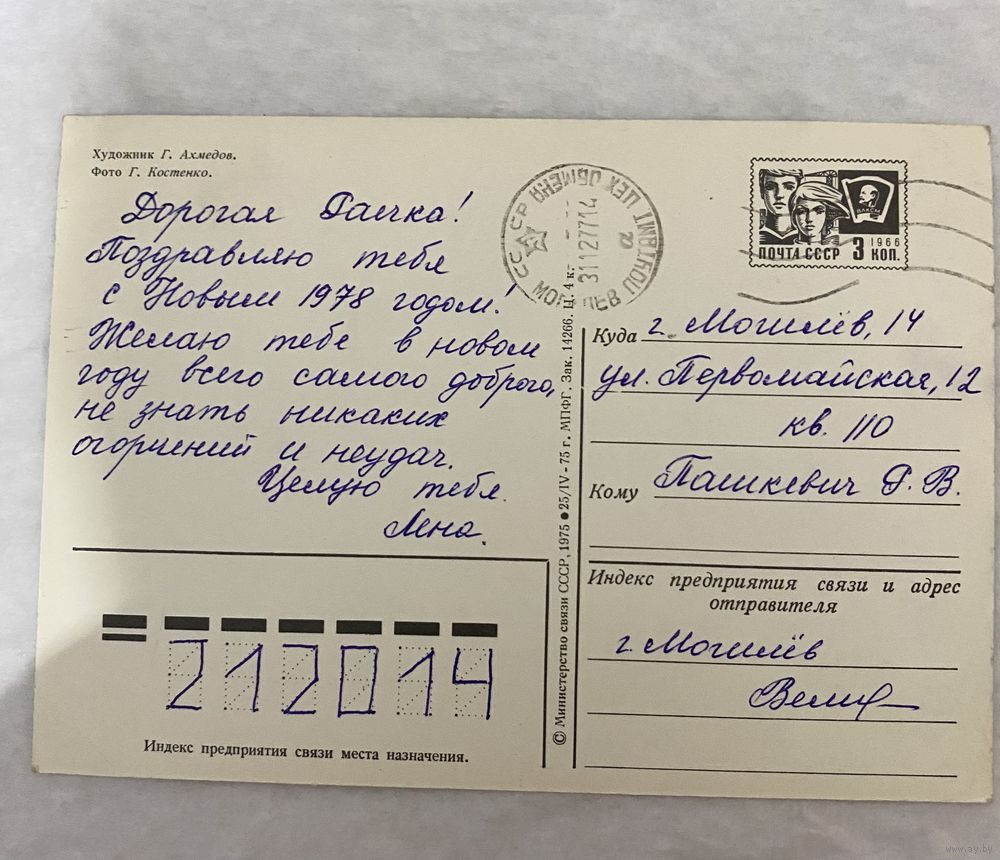 Художник Г. Ахмедов.
Фото Г. Костенко.
Дорогая Галчка!
Поздравляю тебя
с Новым 1978 годом!
Желаю тебе в новом
году всего самого доброго,
не знать никаких
огорчений и неудач.
Целую тебя.
Лена.
212014
Индекс предприятия связи места назначения.
© Министерство связи СССР, 1975 ● 25/IV - 75 г. МПФГ. Зак. 14266. Ц. 4 к.
СССР
31127714
ПОЧТАМТ ЦЕХ ОБМЕНА
ВЛКСМ
1966
ПОЧТА СССР 3 КОП.
Куда г. Могилёв, 14
ул. Первомайская, 12
кв. 110
Кому Пашкевич Г. В.
Индекс предприятия связи и адрес
отправителя
г. Могилёв
www.ay.by